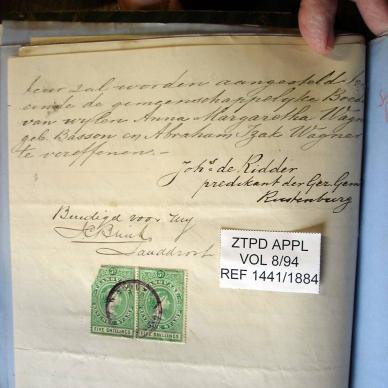 teur zal worden aangesteld ten
einde de gemeenschappelyke Boedel
van wylen Anna Margaretha Wagner
geb. Basson en Abraham Izak Wagner
te vereffenen.—
Johs de Ridder
predikant der Ger. Gem.
Rustenburg
Beëdigd voor my
Landdrost
ZTPD APPL
VOL 8/94
REF 1441/1884
5/-
5/-
FIVE SHILLINGS
FIVE SHILLINGS